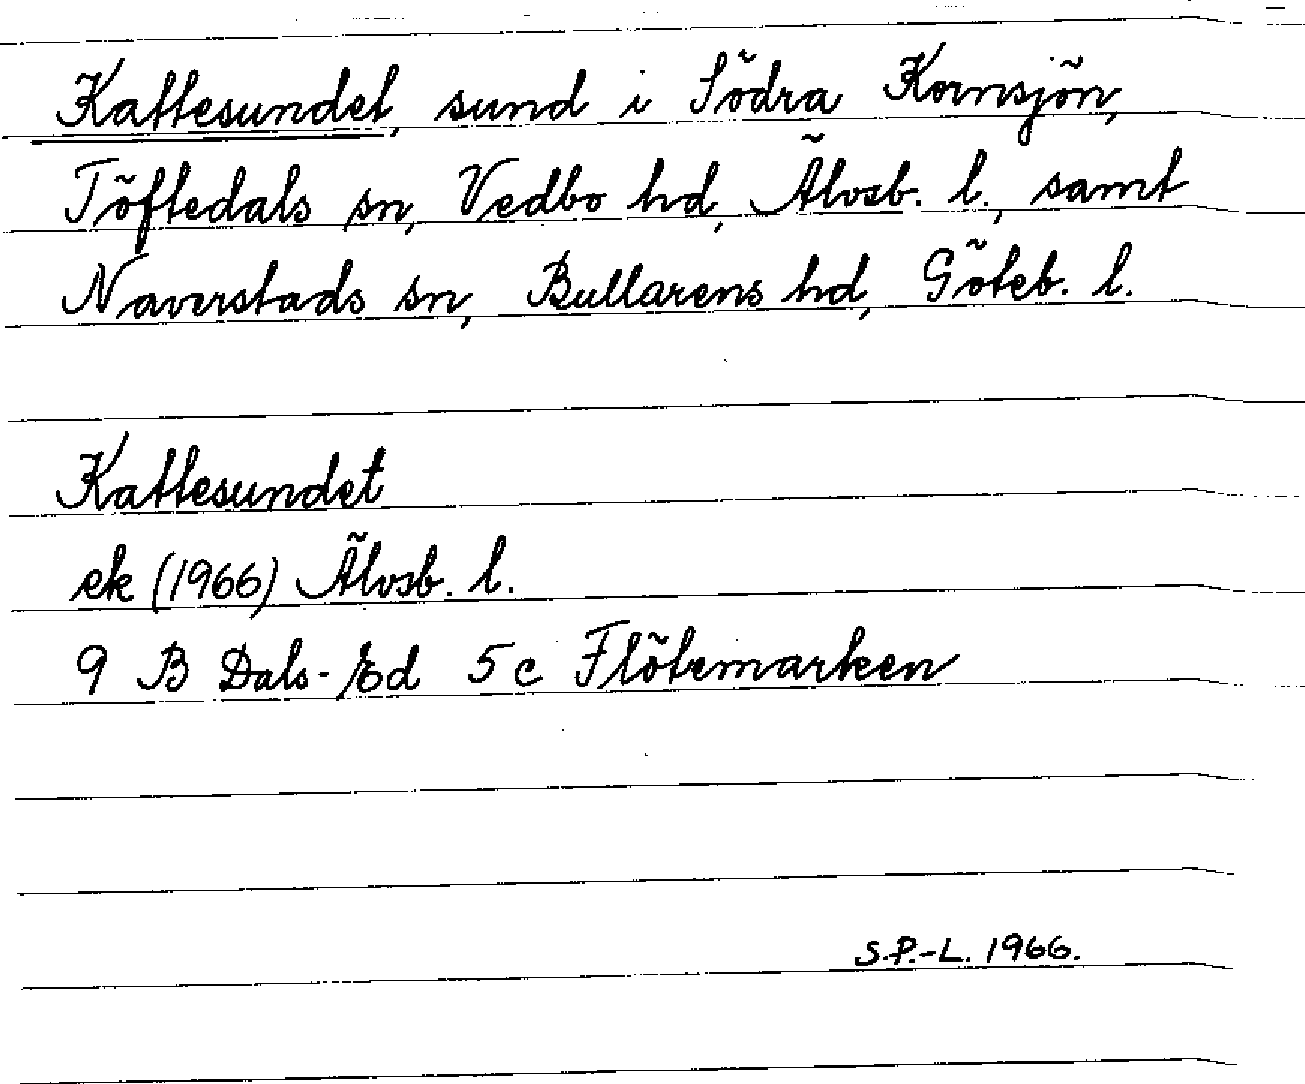 Kattesundet, sund i Södra Kornsjön,
Töftedals sn, Vedbo hd, Älvsb. l., samt
Naverstads sn, Bullarens hd, Göteb. l.
Kattesundet
ek (1966) Älvsb. l.
9 B Dals-Ed 5c Flötemarken
S.P.-L. 1966.